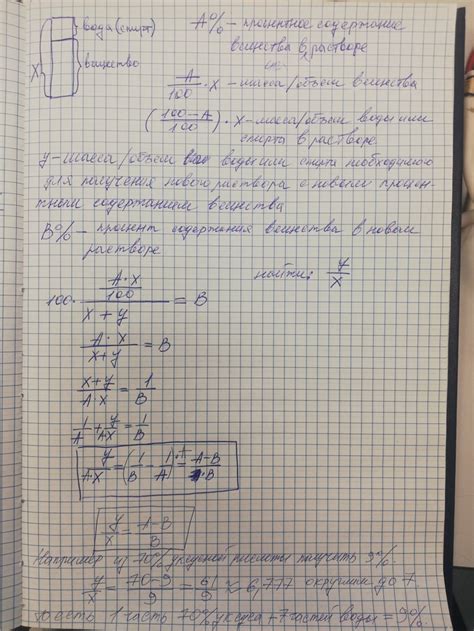 вода (спирт)
вещество
X
A% – процентное содержание
вещества в растворе
A/100 · X – масса/объем вещества
((100 – A)/100) · X – масса/объем воды или
спирта в растворе
y – масса/объем воды или спирта необходимого
для получения нового раствора с новым процен-
тным содержанием вещества
B% – процент содержания вещества в новом
растворе
найти: y/x
100 · (A·x/100)/(x + y) = B
A·x/(x+y) = B
(x+y)/(A x) = 1/B
1/A + y/(Ax) = 1/B
y/(A·x) = (1/B – 1/A) = (A–B)/(A·B)
y/x = (A–B)/B
Например из 70% уксусной кислоты получить 9%.
y/x = (70–9)/9 = 61/9 ≈ 6,777 округлим до 7.
То есть 1 часть 70% уксуса + 7 частей воды = 9%